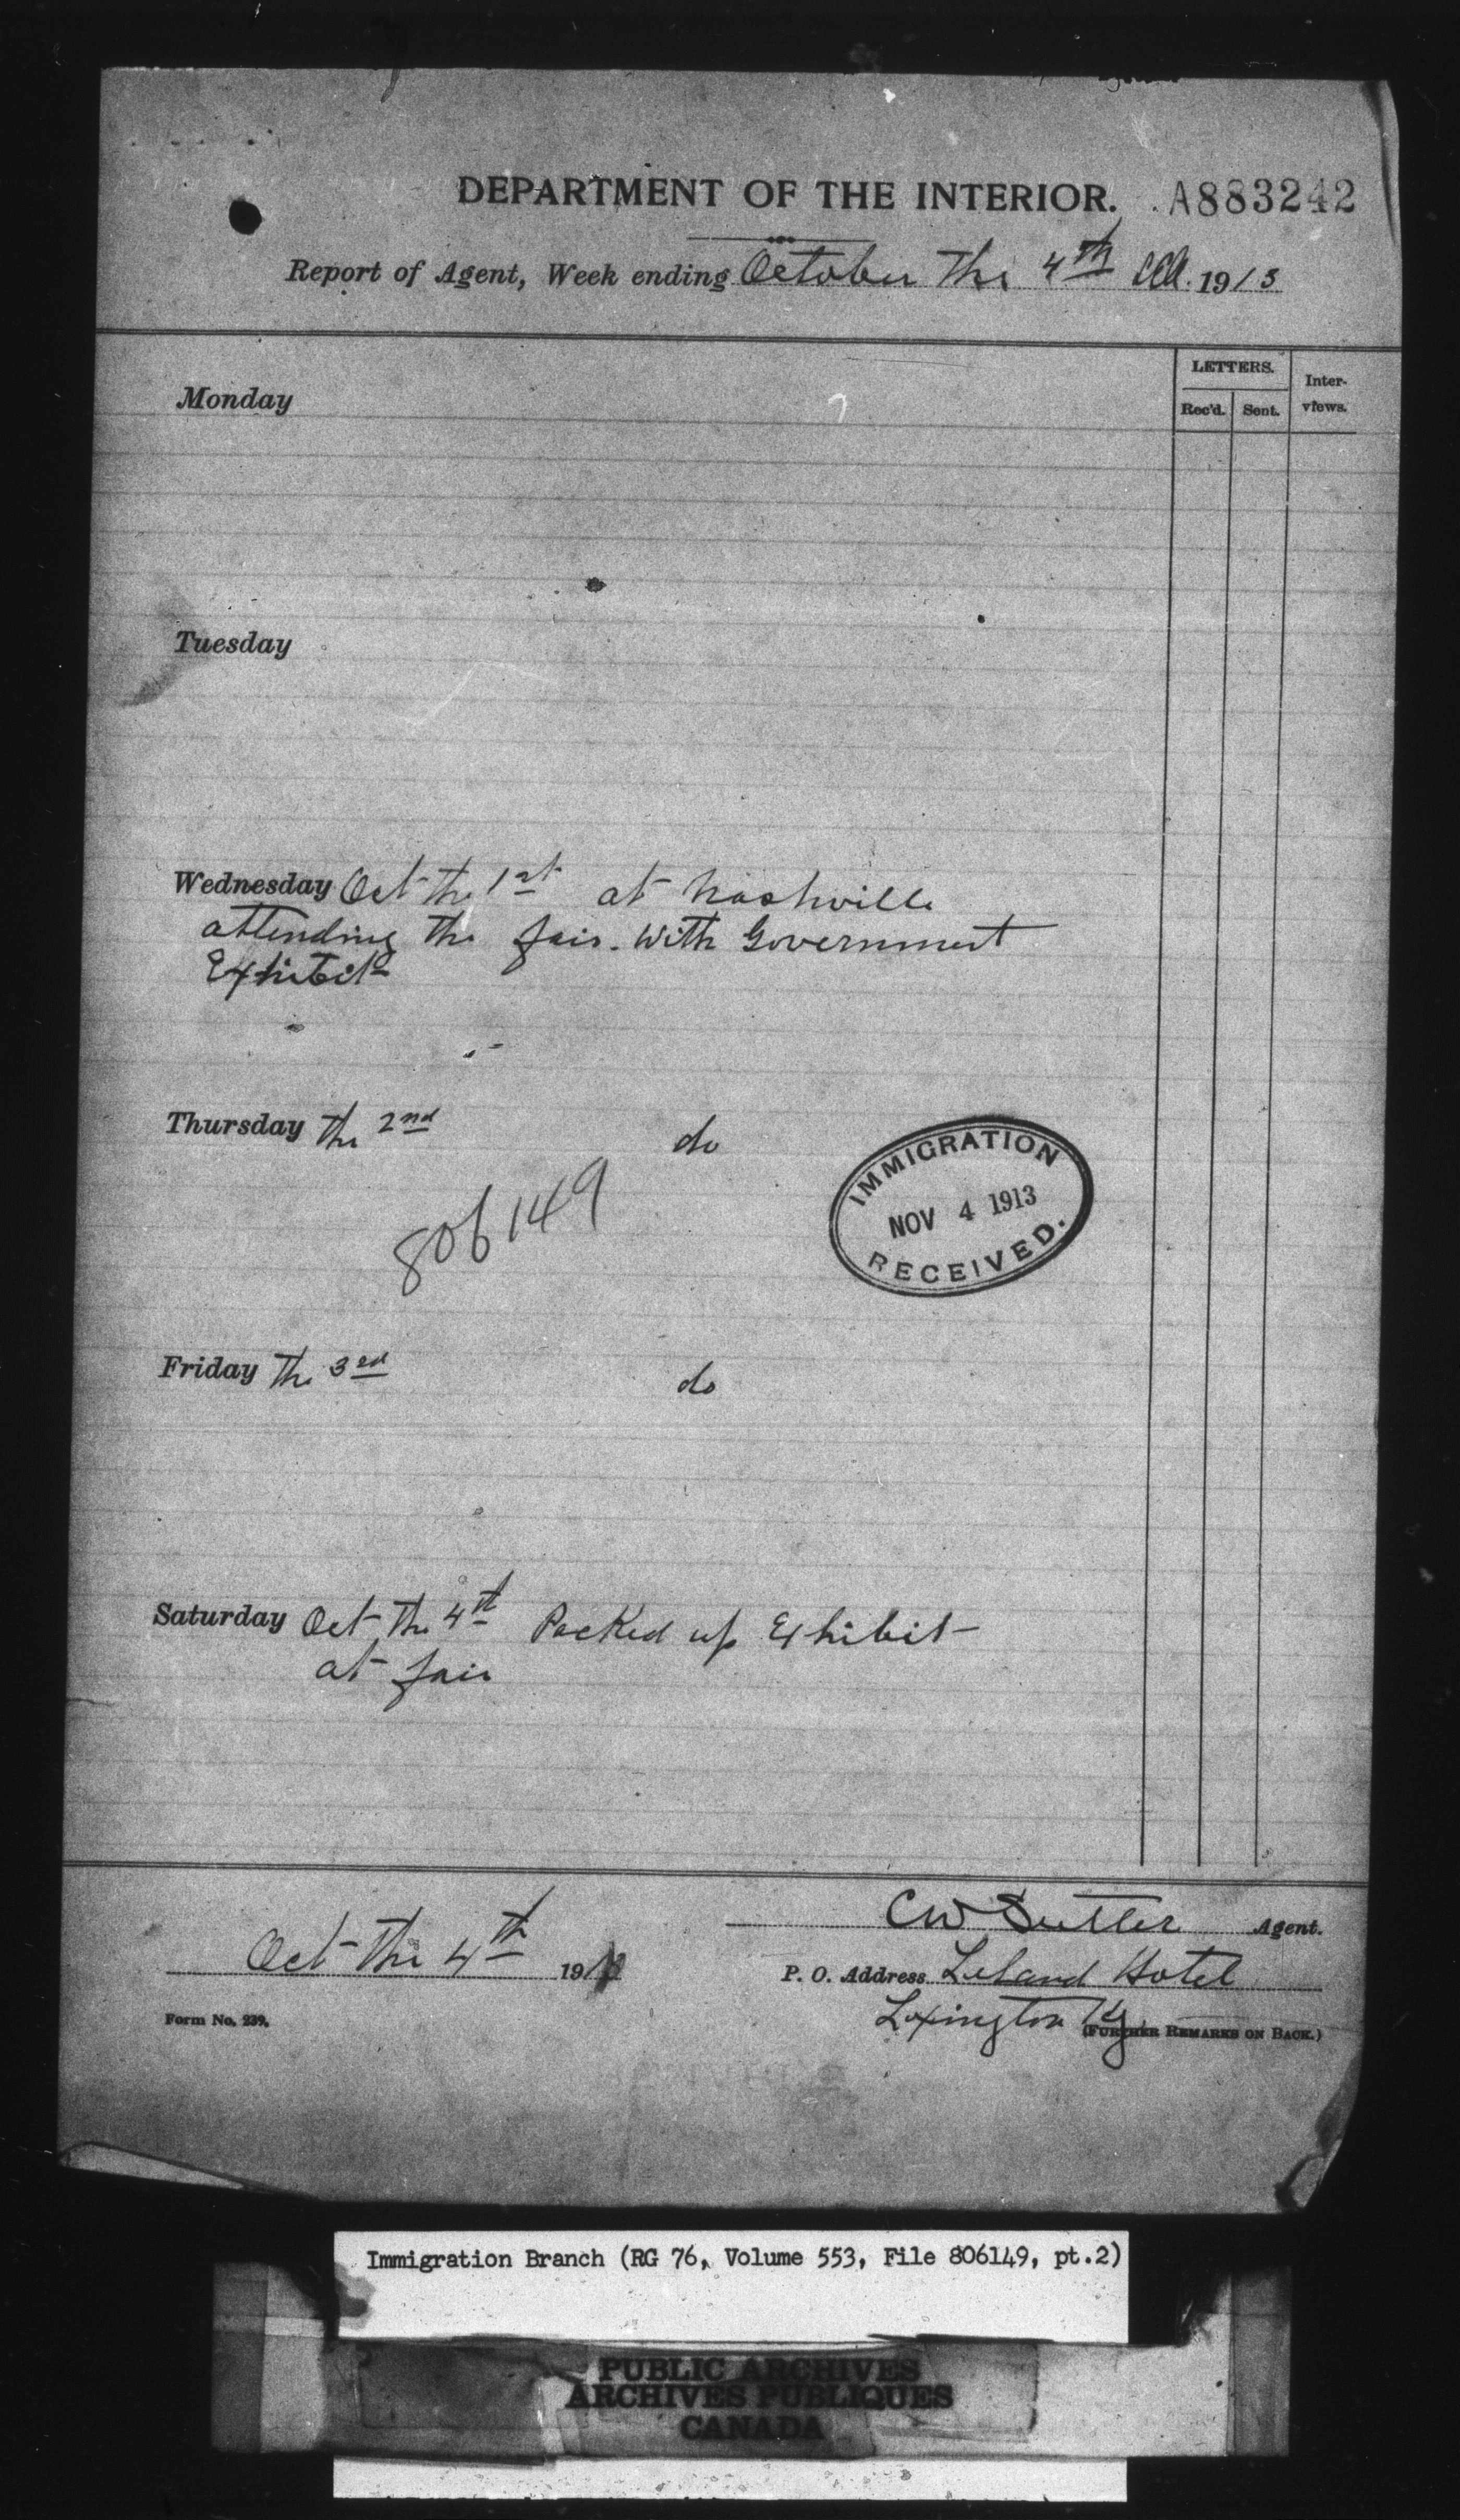 DEPARTMENT OF THE INTERIOR. A883242
Report of Agent, Week ending October The 4th 1913
LETTERS.
Inter-
views.
Rec'd. Sent.
Monday
Tuesday
Wednesday Oct The 1st at Nashville
attending The fair. With Government
Exhibit
Thursday The 2nd do
806149
IMMIGRATION
NOV 4 1913
RECEIVED.
Friday The 3rd do
Saturday Oct The 4th Packed up Exhibit
at fair
CW Sutter Agent.
Oct The 4th 191
P. O. Address Leland Hotel
Lexington Ky
Form No. 239.
(FURTHER REMARKS ON BACK.)
Immigration Branch (RG 76, Volume 553, File 806149, pt.2)
PUBLIC ARCHIVES
ARCHIVES PUBLIQUES
CANADA